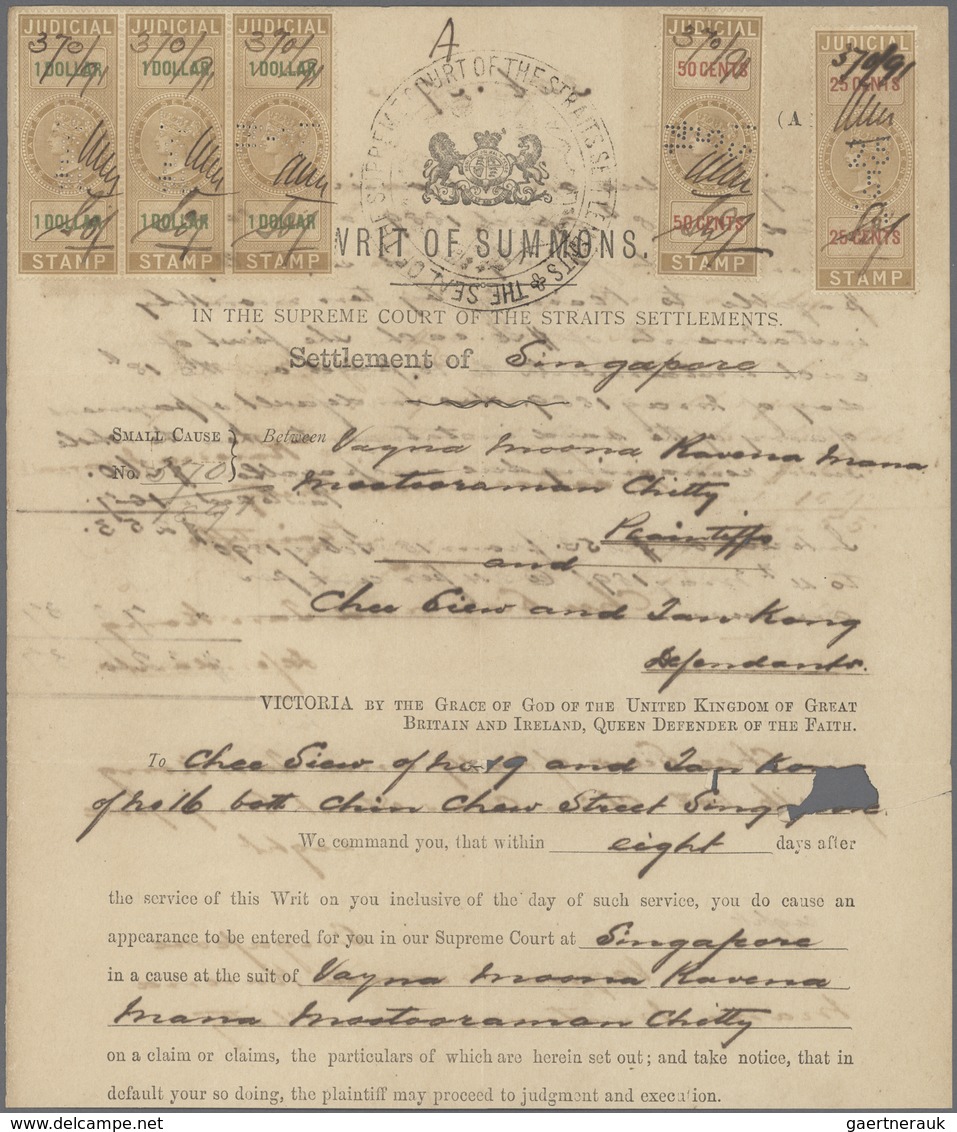 JUDICIAL JUDICIAL JUDICIAL JUDICIAL JUDICIAL
370/91 370/91 370/91 370/91 370/91
1 DOLLAR 1 DOLLAR 1 DOLLAR 50 CENTS 25 CENTS
1 DOLLAR 1 DOLLAR 1 DOLLAR 50 CENTS 25 CENTS
STAMP STAMP STAMP STAMP STAMP
A
(A
THE SEAL OF THE SUPREME COURT OF THE STRAITS SETTLEMENTS
WRIT OF SUMMONS.
IN THE SUPREME COURT OF THE STRAITS SETTLEMENTS.
Settlement of Singapore
SMALL CAUSE Between Vayna Moona Ravena Mana
No. 370 Mootooraman Chitty
Plaintiffs
and
Chee Siew and Tan Kong
Defendants.
VICTORIA BY THE GRACE OF GOD OF THE UNITED KINGDOM OF GREAT
BRITAIN AND IRELAND, QUEEN DEFENDER OF THE FAITH.
To Chee Siew of no 19 and Tan Kong
of no 16 both Chin Chew Street Singapore.
We command you, that within eight days after
the service of this Writ on you inclusive of the day of such service, you do cause an
appearance to be entered for you in our Supreme Court at Singapore
in a cause at the suit of Vayna Moona Ravena
Mana Mootooraman Chitty
on a claim or claims, the particulars of which are herein set out; and take notice, that in
default your so doing, the plaintiff may proceed to judgment and execution.
www.delcampe.net
gaertnerauk